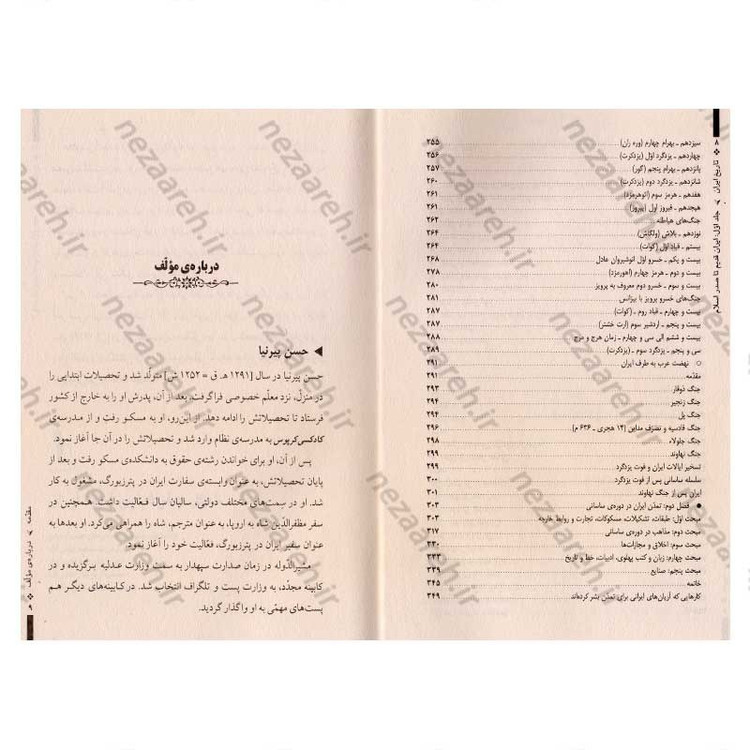 تاریخ ایران
جلد اول: ایران قدیم تا صدر اسلام
سیزدهم ـ بهرام چهارم (وره ران) ۲۵۵
چهاردهم ـ یزدگرد اوّل (یزدکرت) ۲۵۶
پانزدهم ـ بهرام پنجم (گور) ۲۵۷
شانزدهم ـ یزدگرد دوم (یزدکرت) ۲۶۰
هفدهم ـ هرمز سوم (اثوهرمزد) ۲۶۱
هیجدهم ـ فیروز اول (پیروز) ۲۶۱
جنگ‌های هیاطله ۲۶۲
نوزدهم ـ بلاش (ولگاش) ۲۶۴
بیستم ـ قباد اوّل (کوات) ۲۶۴
بیست و یکم ـ خسرو اوّل انوشیروان عادل ۲۶۸
بیست و دوم ـ هرمز چهارم (اهورمزد) ۲۷۸
بیست و سوم ـ خسرو دوم معروف به پرویز ۲۸۰
جنگ‌های خسرو پرویز با بیزانس ۲۸۱
بیست و چهارم ـ قباد روم (کوات) ۲۸۷
بیست و پنجم ـ اردشیر سوم (ارت خشتر) ۲۸۷
بیست و ششم الی سی و چهارم ـ زمان هرج و مرج ۲۸۸
سی و پنجم ـ یزدگرد سوم (یزدکرت) ۲۸۹
نهضت عرب به طرف ایران ۲۹۱
مقدمه ۲۹۱
جنگ ذوقار ۲۹۳
جنگ زنجیر ۲۹۴
جنگ پل ۲۹۴
جنگ قادسیه و تصرّف مداین (۱۴ هجری ـ ۶۳۶ م) ۲۹۶
جنگ جلولاء
جنگ نهاوند
تسخیر ایالات ایران و فوت یزدگرد ۲۹۹
سلسله ساسانی پس از فوت یزدگرد ۳۰۰
ایران پس از جنگ نهاوند ۳۰۱
فصل دوم: تمدّن ایران در دوره‌ی ساسانی ۳۰۳
مبحث اول: طبقات، تشکیلات، مسکوکات، تجارت و روابط خارجه ۳۰۳
مبحث دوم: مذاهب در دوره‌ی ساسانی
مبحث سوم: اخلاق و مجازات‌ها
مبحث چهارم: زبان و کتب پهلوی، ادبیات، خط و تاریخ ۳۳۳
مبحث پنجم: صنایع ۳۳۹
خاتمه ۳۴۵
کارهایی که آریان‌های ایرانی برای تمدّن بشر کرده‌اند ۳۴۹
درباره‌ی مؤلّف
حسن پیرنیا
حسن پیرنیا در سال [۱۲۹۱ هـ. ق = ۱۲۵۲ ش] متولّد شد و تحصیلات ابتدایی را
در منزل، نزد معلّم خصوصی فراگرفت. بعد از آن، پدرش او را به خارج از کشور
فرستاد تا تحصیلاتش را ادامه دهد. از این‌رو، او به مسکو رفت و از مدرسه‌ی
کادکسی کرپوس به مدرسه‌ی نظام وارد شد و تحصیلاتش را در آن جا آغاز نمود.
پس از آن، او برای خواندن رشته‌ی حقوق به دانشکده‌ی مسکو رفت و بعد از
پایان تحصیلاتش، به عنوان وابسته‌ی سفارت ایران در پترزبورگ، مشغول به کار
شد. او در سِمَت‌های مختلف دولتی، سالیان سال فعالیت داشت. همچنین در
سفر مظفرالدین شاه به اروپا، به عنوان مترجم، شاه را همراهی می‌کرد. او بعدها به
عنوان سفیر ایران در پترزبورگ، فعّالیت خود را آغاز نمود.
مشیرالدوله در زمان صدارت سپهدار به سمت وزارت عدلیه برگزیده و در
کابینه مجدّد، به وزارت پست و تلگراف انتخاب شد. در کابینه‌های دیگر هم
پست‌های مهمّی به او واگذار گردید.
مقدمه
درباره‌ی مؤلف
nezaareh.ir
nezaareh.ir
nezaareh.ir
nezaareh.ir
nezaareh.ir
nezaareh.ir
nezaareh.ir
nezaareh.ir
nezaareh.ir
nezaareh.ir